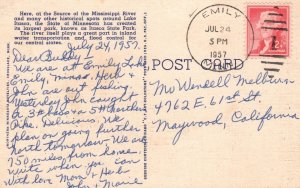 Here, at the Source of the Mississippi River
and many other historical spots around Lake
Itasca, the State of Minnesota has created
its largest park, known as Itasca State Park.
The river itself plays a great part in inland
water transportation, and flood control for
our central states.
EMILY
JUL 24
5 PM
1957
July 24, 1957.
Dear Buddy,
We are at Emily Lake
Emily, Minn. Herb &
John are out fishing
Yesterday John caught
a 3# bass & a 5# Northern
Pike. Delicious. We
plan on going further
north tomorrow. We are
750 miles from home.
Write when you can
With love Mom & Herb
John & Marie
POST CARD
Mr Wendell Melburn
4762 E. 61st St.
Maywood, California